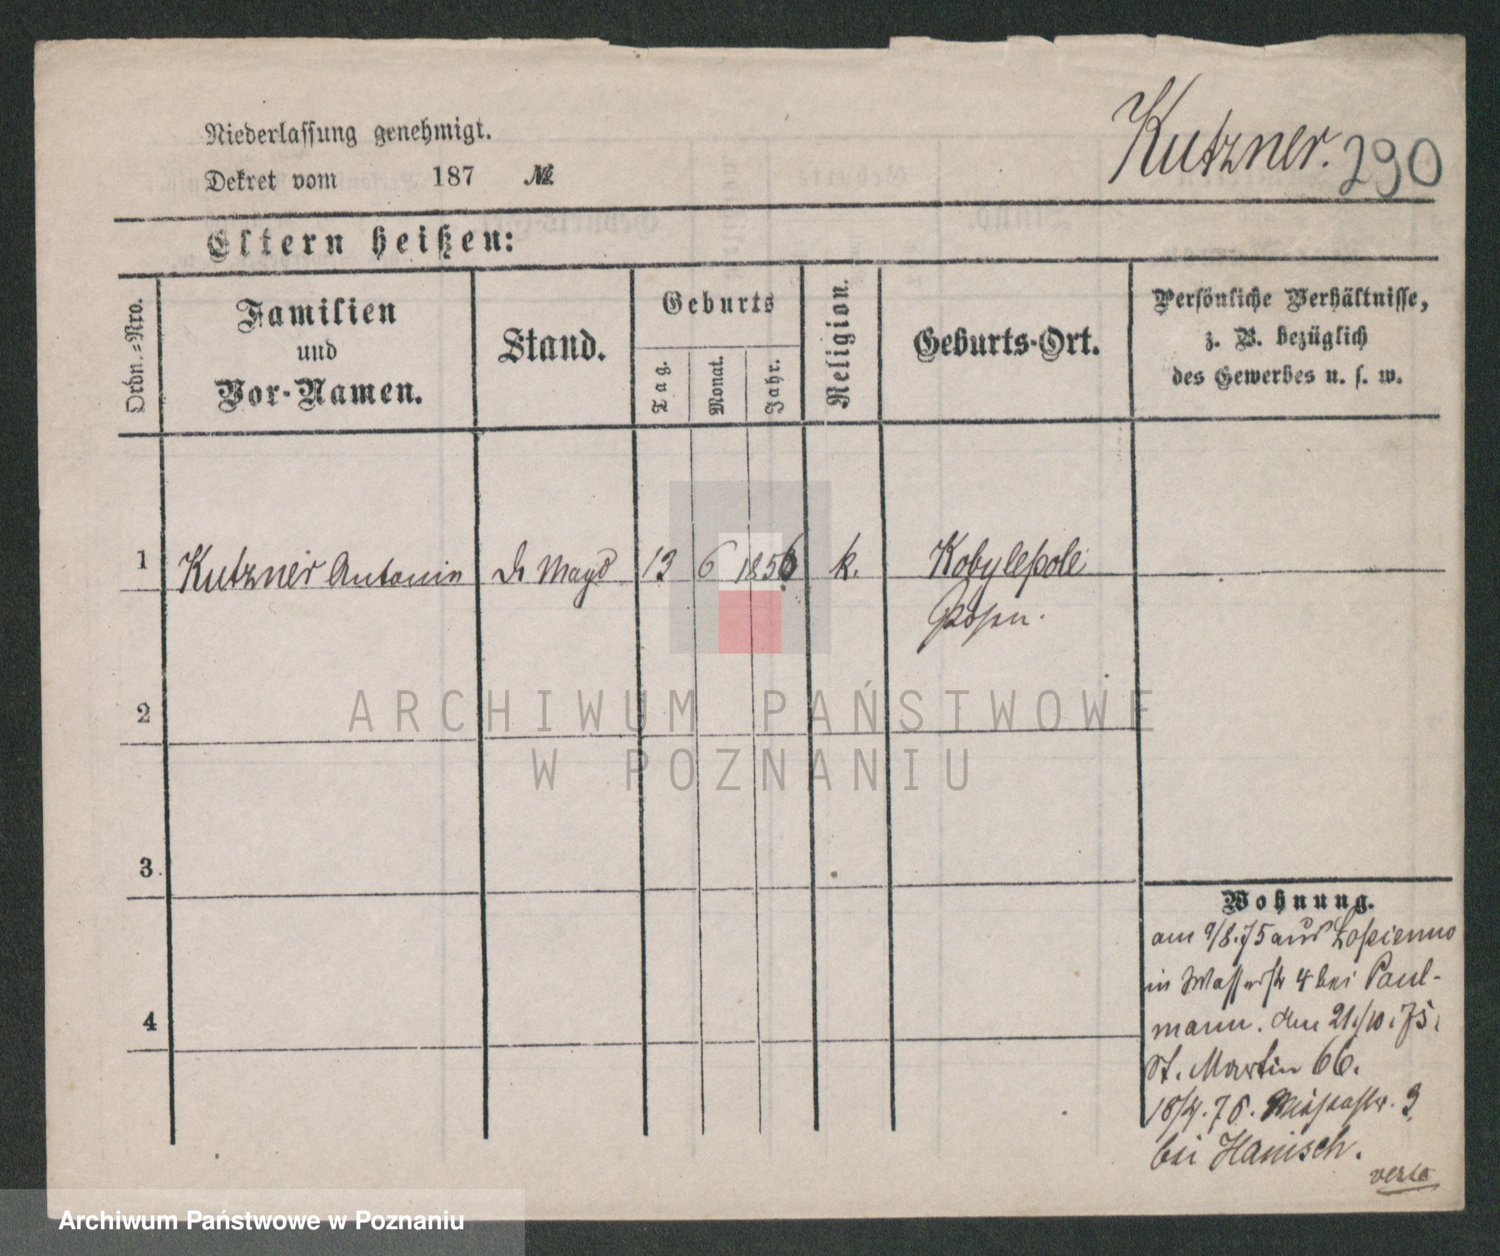 Kutzner. 290
Niederlassung genehmigt.
Dekret vom 187 №
Eltern heißen:
Ordn.=Nro.
Familien
und
Vor-Namen.
Stand.
Geburts
Tag.
Monat.
Jahr.
Religion.
Geburts-Ort.
Persönliche Verhältnisse,
z. B. bezüglich
des Gewerbes u. s. w.
1 Kutzner Antonin d. Magd 13 6 1856 k. Kobylepole
Posen.
2
3
4
Wohnung.
am 9/8.75 aus Lopienno
in Wasserstr 4 bei Paul-
mann. den 21/10.75.
St. Martin 66.
18/4.76. 3
bei Hanisch.
verte
ARCHIWUM PAŃSTWOWE
W POZNANIU
Archiwum Państwowe w Poznaniu